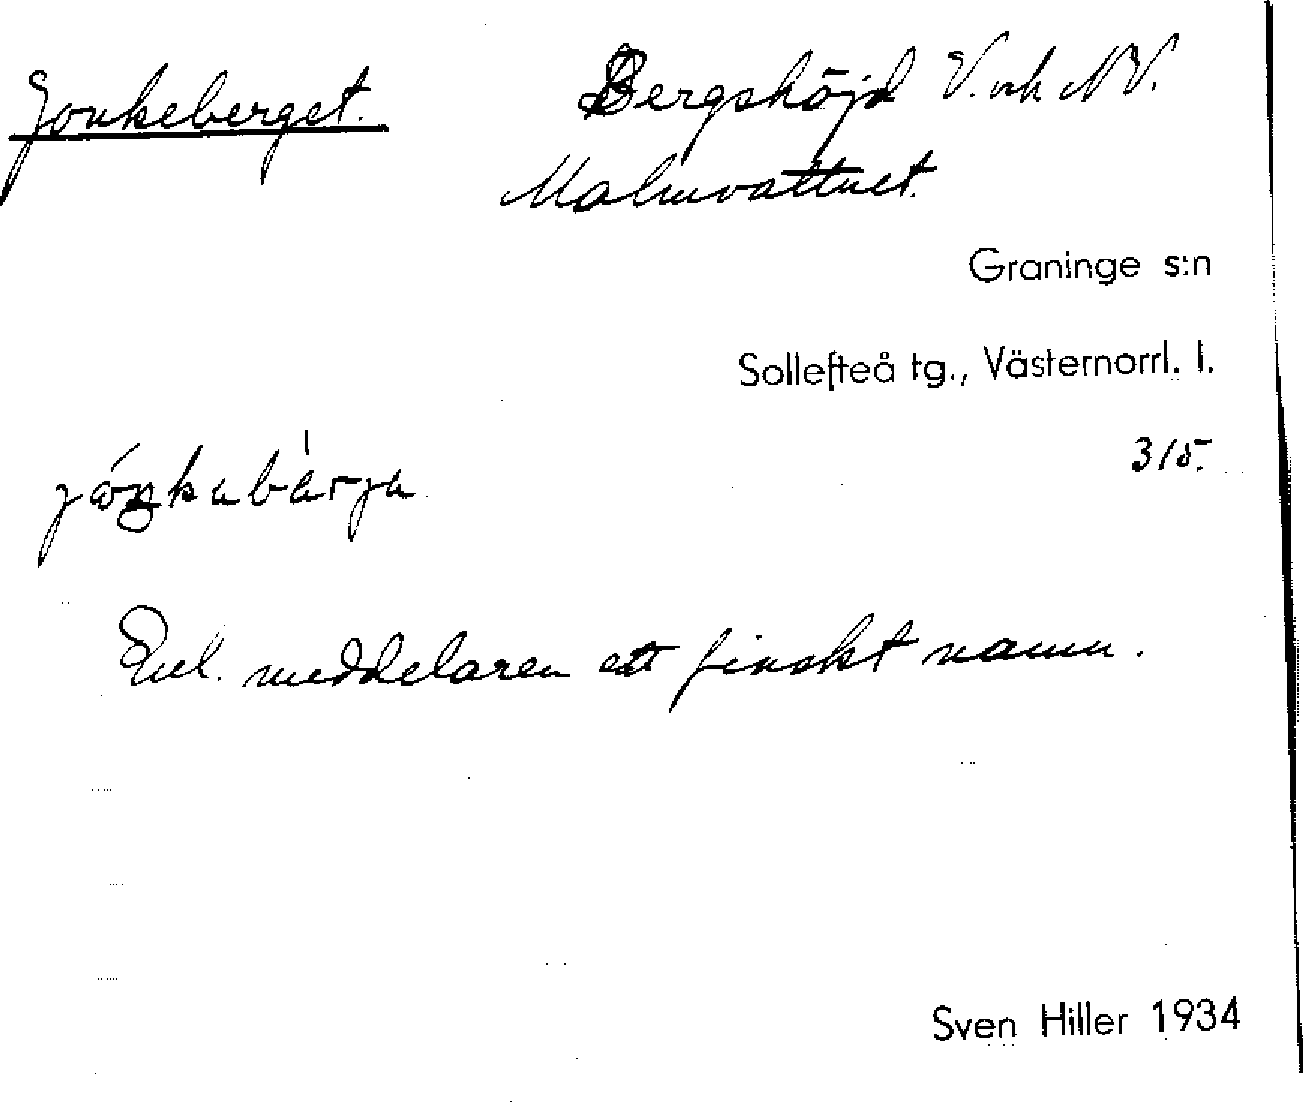 Jonkeberget. Bergshöjd V. och NV.
Malmvattnet.
Graninge s:n
Sollefteå tg., Västernorrl. l.
315.
Enl. meddelaren ett finskt namn.
Sven Hiller 1934